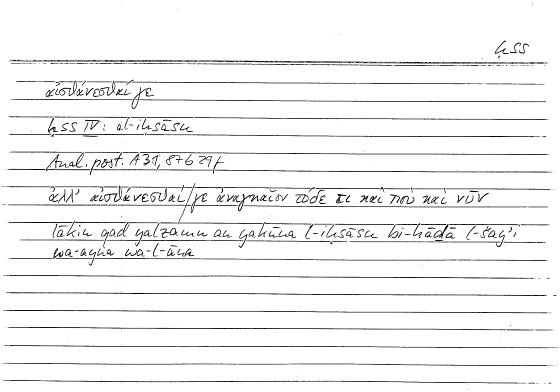 ḥss
αἰσθάνεσθαί γε
ḥss IV: al-iḥsāsu
Anal. post. A31, 87b29f
ἀλλ' αἰσθάνεσθαί/γε ἀναγκαῖον τόδε τι καὶ ποὺ καὶ νῦν
lākin qad yalzamu an yakūna l-iḥsāsu bi-hāḏā l-šay'i
wa-ayna wa-l-āna